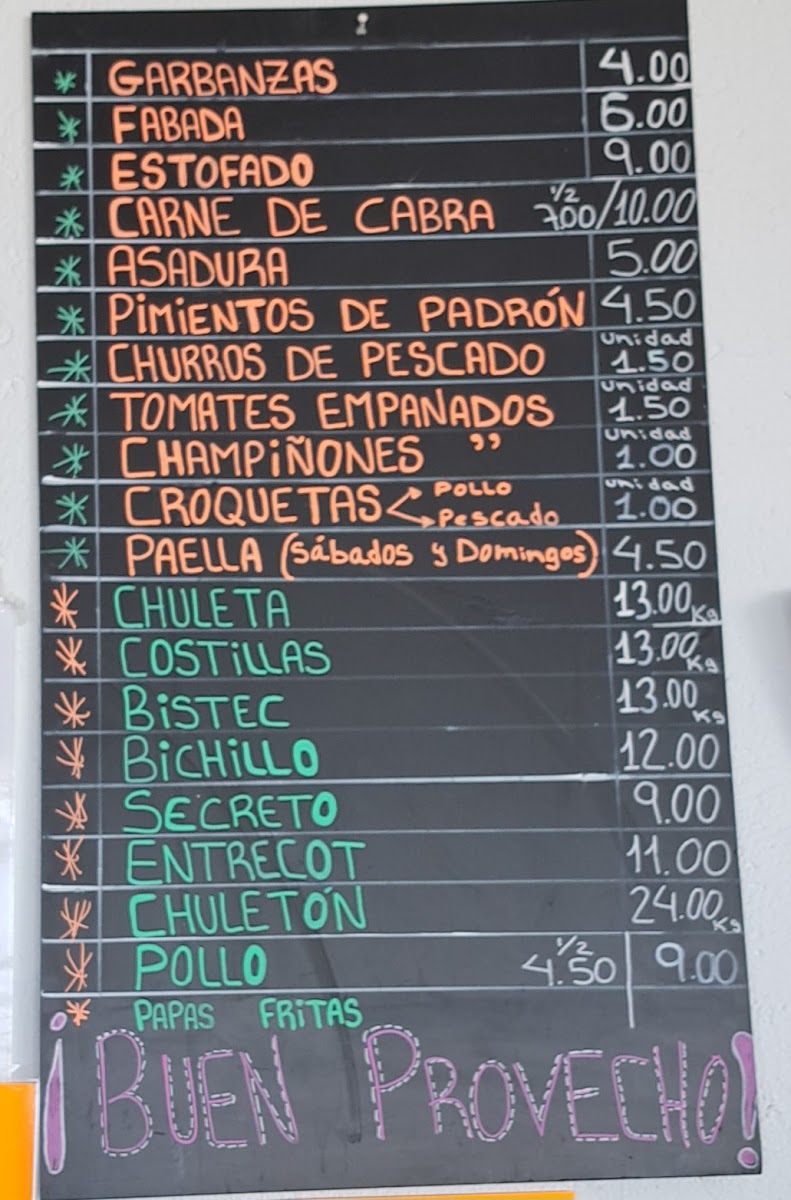 * GARBANZAS 4.00
* FABADA 6.00
* ESTOFADO 9.00
* CARNE DE CABRA 1/2 7.00/10.00
* ASADURA 5.00
* PiMiENTOS DE PADRÓN 4.50
* CHURROS DE PESCADO unidad 1.50
* TOMATES EMPANADOS unidad 1.50
* CHAMPiÑONES " unidad 1.00
* CROQUETAS POLLO Pescado unidad 1.00
* PAELLA (Sábados y Domingos) 4.50
* CHULETA 13.00 Kg
* COSTiLLAS 13.00 Kg
* BiSTEC 13.00 Kg
* BiCHiLLO 12.00
* SECRETO 9.00
* ENTRECOT 11.00
* CHULETÓN 24.00 Kg
* POLLO 1/2 4.50 9.00
* PAPAS FRiTAS
¡BUEN PROVECHO!